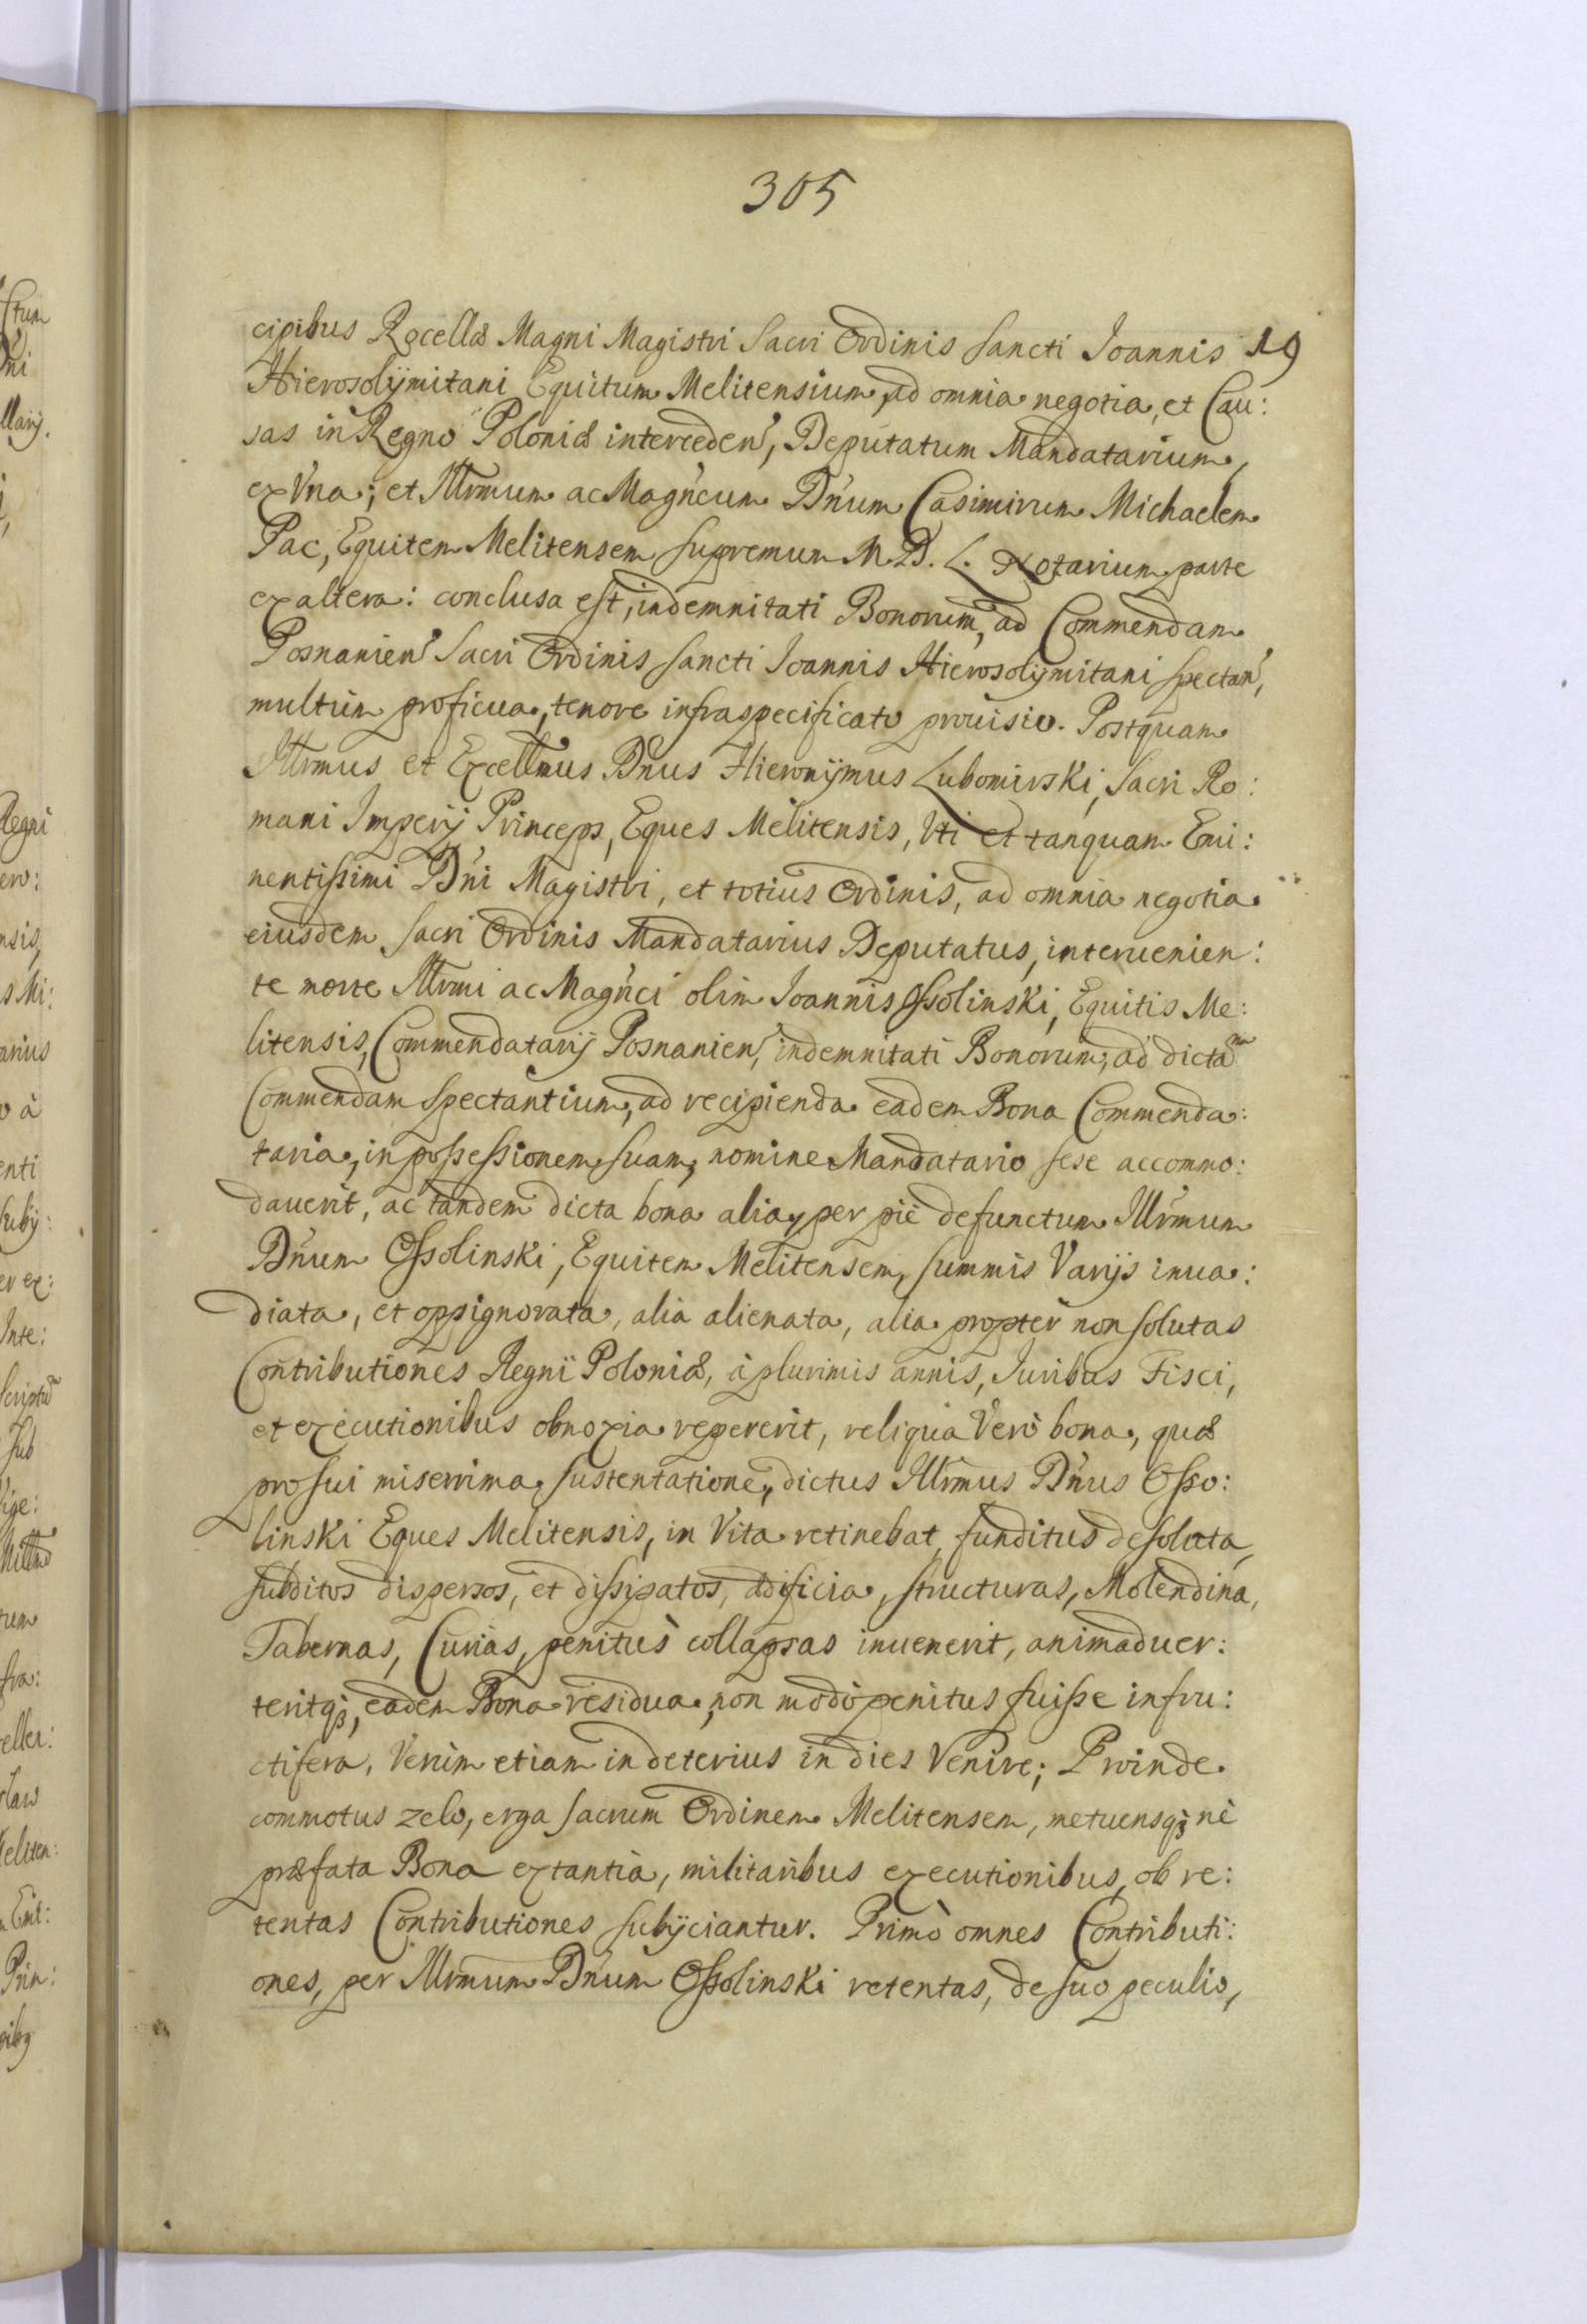 305
cipibus Rocellæ Magni Magistri Sacri Ordinis Sancti Joannis 19
Hierosolÿmitani Equitum Melitensium, ad omnia negotia, et Cau:
sas in Regno Poloniæ interceden', Deputatum Mandatarium,
ex Vna; et Illrmum ac Magn'cum Dn'um Casimirum Michaelem
Pac, Equitem Melitensem Supremum M. D. L. Notarium parte
ex altera: conclusa est, indemnitati Bonorum, ad Commendam
Posnanien' Sacri Ordinis Sancti Joannis Hierosolÿmitani Spectan',
multum proficua, tenore infraspecificato prouisio. Postquam
Illrmus et Excellmus Dnus Hieronÿmus Lubomirski, Sacri Ro:
mani Imperij Princeps, Eques Melitensis, Vti et tanquam Emi:
nentissimi Dn'i Magistri, et totius Ordinis, ad omnia negotia
eiusdem Sacri Ordinis Mandatarius Deputatus, interuenien:
te morte Illrmi ac Magn'ci olim Joannis Ossolinski, Equitis Me:
litensis, Commendatarij Posnanien', indemnitati Bonorum, ad dictam
Commendam Spectantium, ad recipienda eadem Bona Commenda:
taria, in possessionem suam, nomine Mandatario sese accommo:
dauerit, ac tandem dicta bona alia, per piè defunctum Illrmum
Dn'um Ossolinski, Equitem Melitensem, summis Varijs inua:
diata, et oppignorata, alia alienata, alia propter non solutas
Contributiones Regni Poloniæ, à plurimis annis, Iuribus Fisci,
et executionibus obnoxia repererit, reliqua Verò bona, quæ
pro sui miserrima, sustentatione, dictus Illrmus Dn'us Osso:
linski Eques Melitensis, in Vita retinebat, funditus desolata,
Subditos dispersos, et dissipatos, ædificia, structuras, Molendina,
Tabernas, Curias, penitùs collapsas inuenerit, animaduer:
teritq3, eadem Bona residua, non modò penitus fuisse infru:
ctifera, Verùm etiam in deterius in dies Venire; Proinde
commotus zelo, erga Sacrum Ordinem Melitensem, metuensq3 nè
præfata Bona extantia, militaribus executionibus, ob re:
tentas Contributiones subÿciantur. Primò omnes Contributi:
ones, per Illrmum Dn'um Ossolinski retentas, de suo peculio,